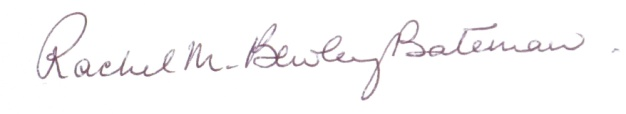 Rachel M. Bewley Bateman.